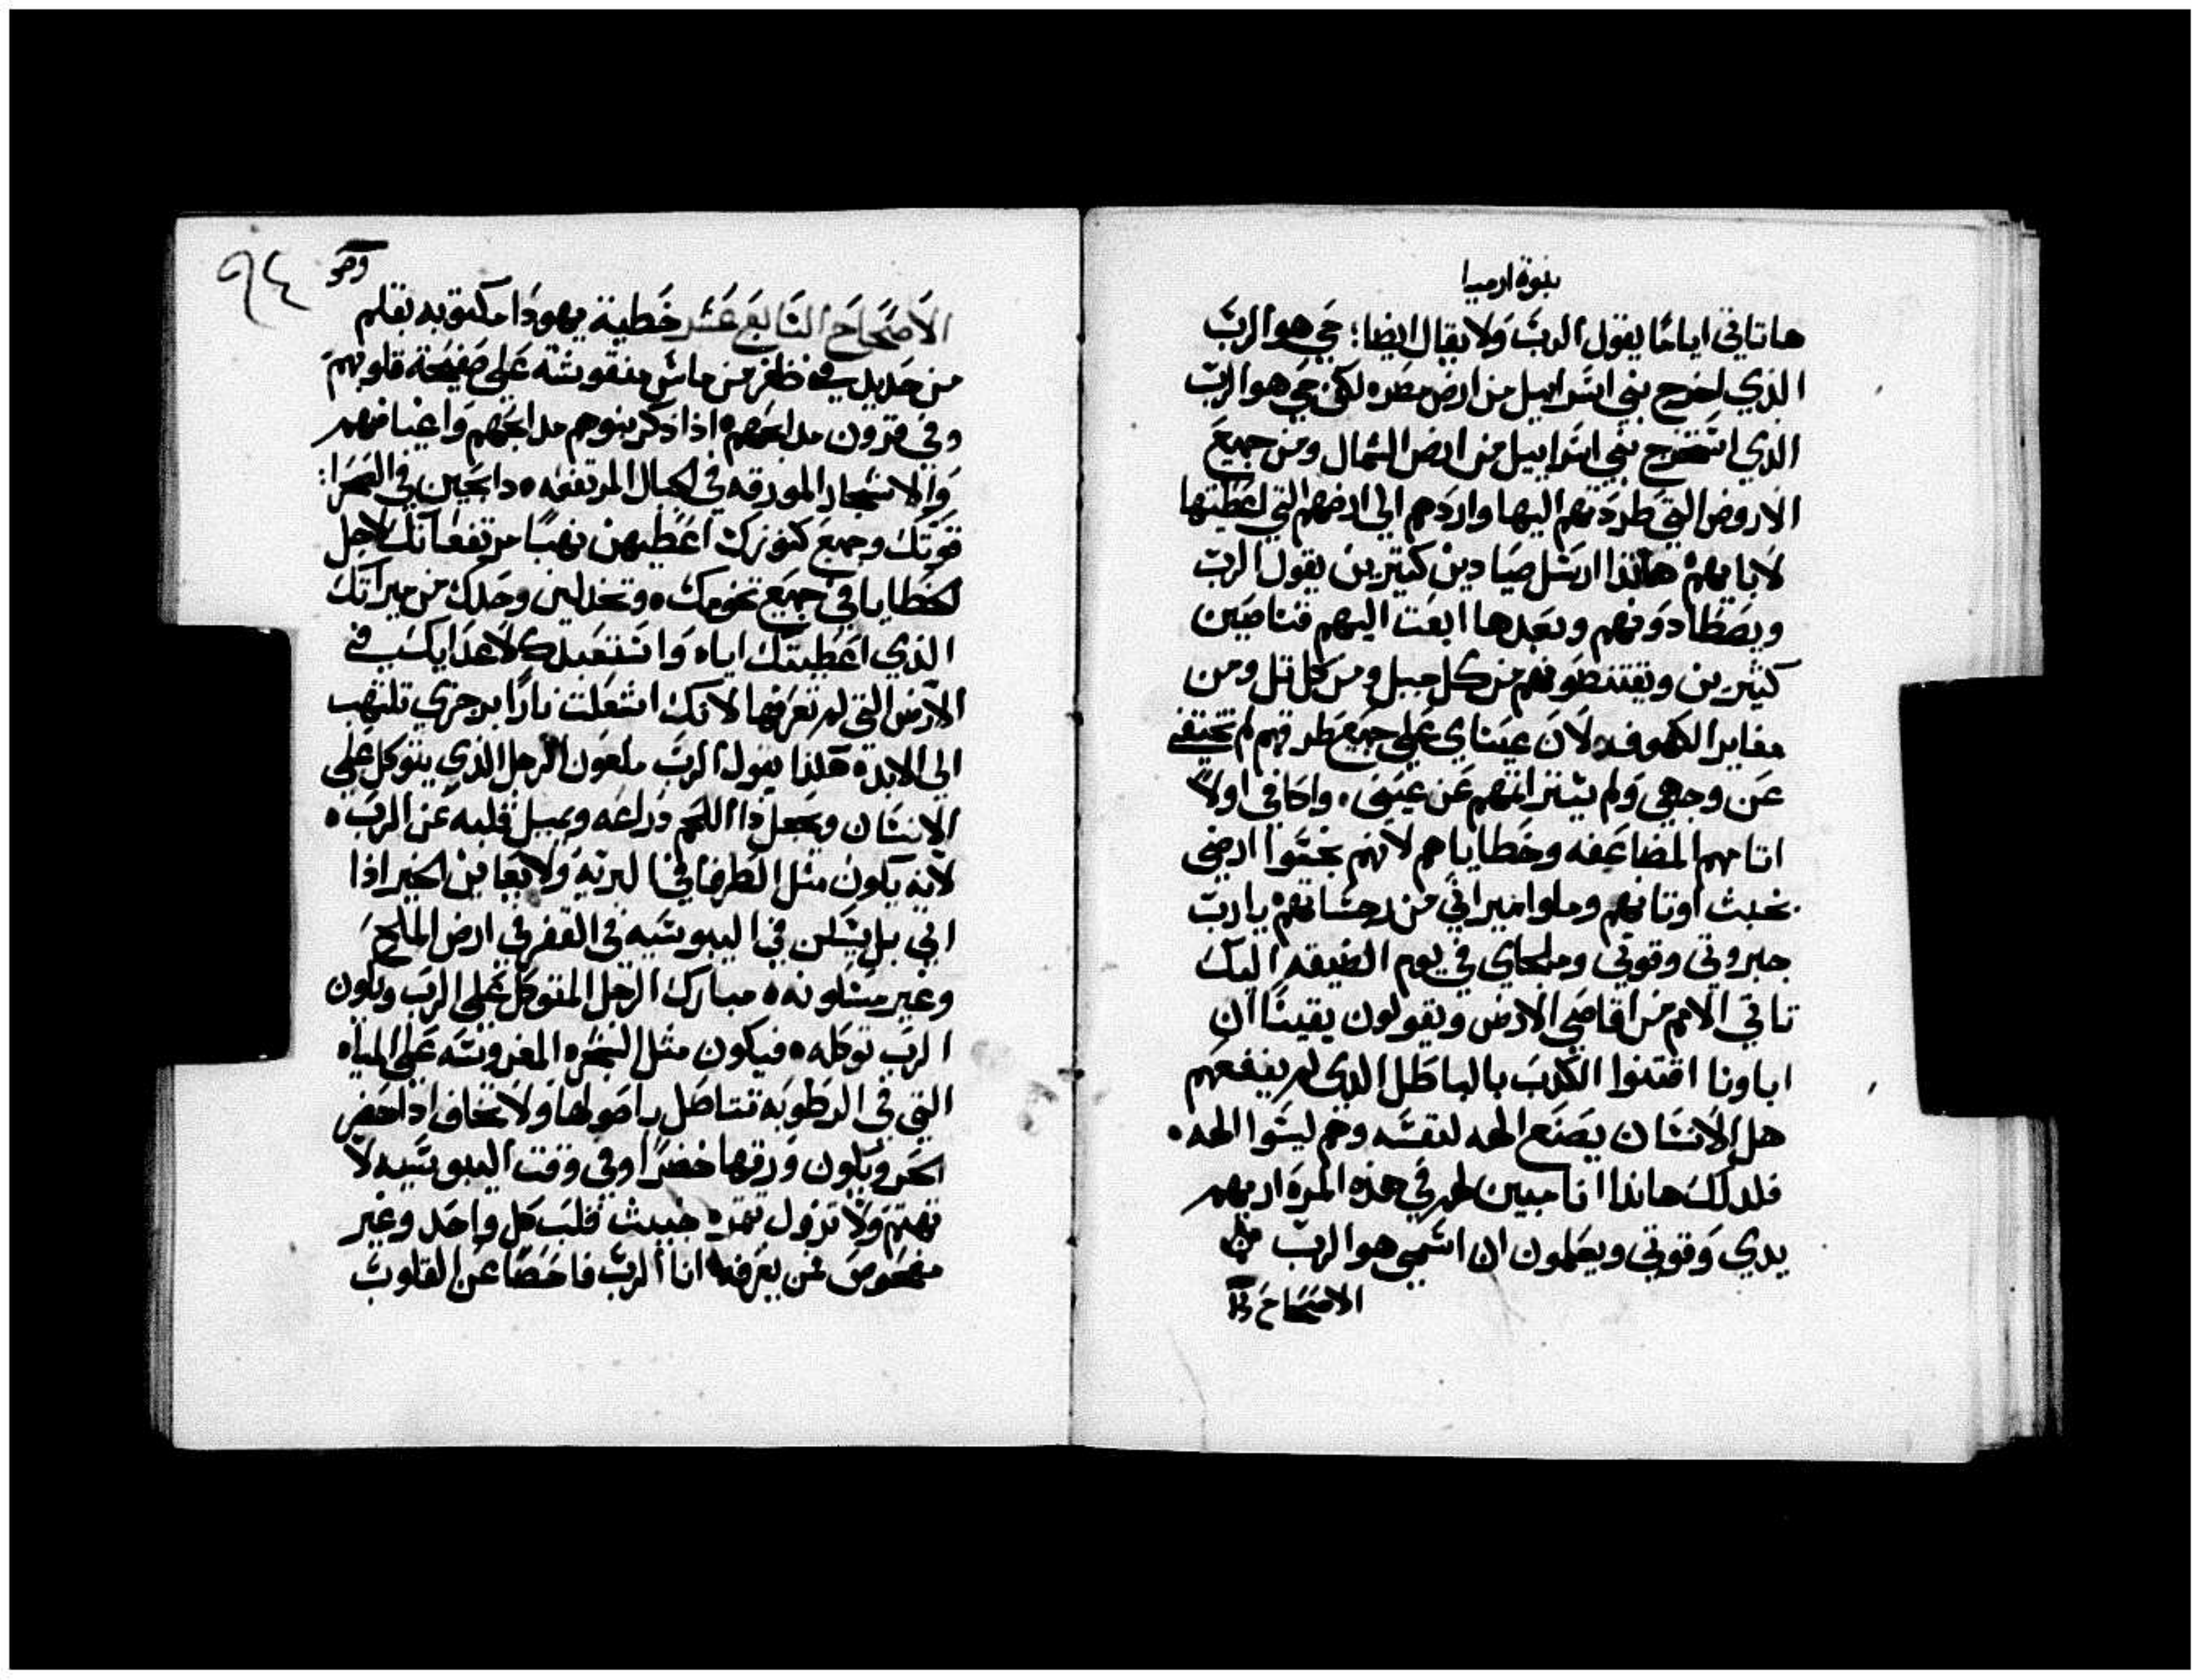 نبوة ارميا
هاتاتي اياما يقول الرب ولا يقال ايضا؛ حي هو الرب
الذي اخرج بني اسراييل من ارض مصر ه لكن حي هو الرب
الذي استخرج بني اسراييل من ارض الشمال ومن جميع
الاروض التي طردتهم اليها واردهم الي ارضهم التي اعطيتها
لابايهم هانذا ارسل صيادين كتيرين يقول الرب
ويصطادونهم وبعدها ابعت اليهم قناصين
كثيرين ويقتنطونهم من كل جبل ومن كل تل ومن
مغاير الكهوف ه لان عيناي علي جميع طرقهم لم تختفي
عن وجهي ولم يستتر اتمهم عن عيني ه واكافي اولا
اتامهم المضاعفه وخطاياهم لانهم نجسوا ارضي
بخبث اوتانهم وملوا ميراتي من رجساتهم يارب
جبروتي وقوتي وملجاي في يوم الضيقه اليك
تاتي الامم من اقاصي الارض ويقولون يقينا ان
اباونا اقتنوا الكدب بالباطل الدي لم ينفعهم
هل الانسان يصنع الهه لنفسه وهم ليسوا الهه ه
فلدلك هاندا انا مبين لهم في هذه المره اريهم
يدي وقوتي ويعلمون ان اسمي هو الرب
الاصحاح
٩٤
الاصحاح السابع عشر خطية يهودا مكتوبه بقلم
من حديد في ظفر من ماس منقوشه علي صفيحة قلوبهم
وفي قرون مدابحهم ه اذا دكر بنوهم مدابحهم واغياضهم
والاشجار المورقه في الجبال المرتفعه ه دابحين في الصحرا:
قوتك وجميع كنوزك اعطيهن نهبا مرتفعاتك لاجل
الخطايا في جميع تخومك ه وتخدلين وحدك من ميراتك
الذي اعطيتك اياه واستعبدك لاعدايك في
الارض التي لم تعرفها لانك اشعلت نارا برجزي تلتهب
الي الابد ه هكذا يقول الرب ملعون الرجل الذي يتوكل علي
الانسان ويجعل دا اللحم دراعه ويميل قلبه عن الرب ه
لانه يكون مثل الطرفا في البريه ولا يعاين الخير اذا
اتي بل يسكن في اليبوسيه في القفر في ارض المالح
وغير مسكونه ه مبارك الرجل المتوكل علي الرب ويكون
الرب توكله ه فيكون مثل الشجره المغروسه علي المياه
التي في الرطوبه تتاصل باصولها ولا تخاف اذا حضر
الحر ويكون ورقها خضرا وفي وقت اليبوسيه لا
تهتم ولا تزول تمره خبيث قلب كل واحد وغير
مفحوص من يعرفه انا الرب فاحصا عن القلوب